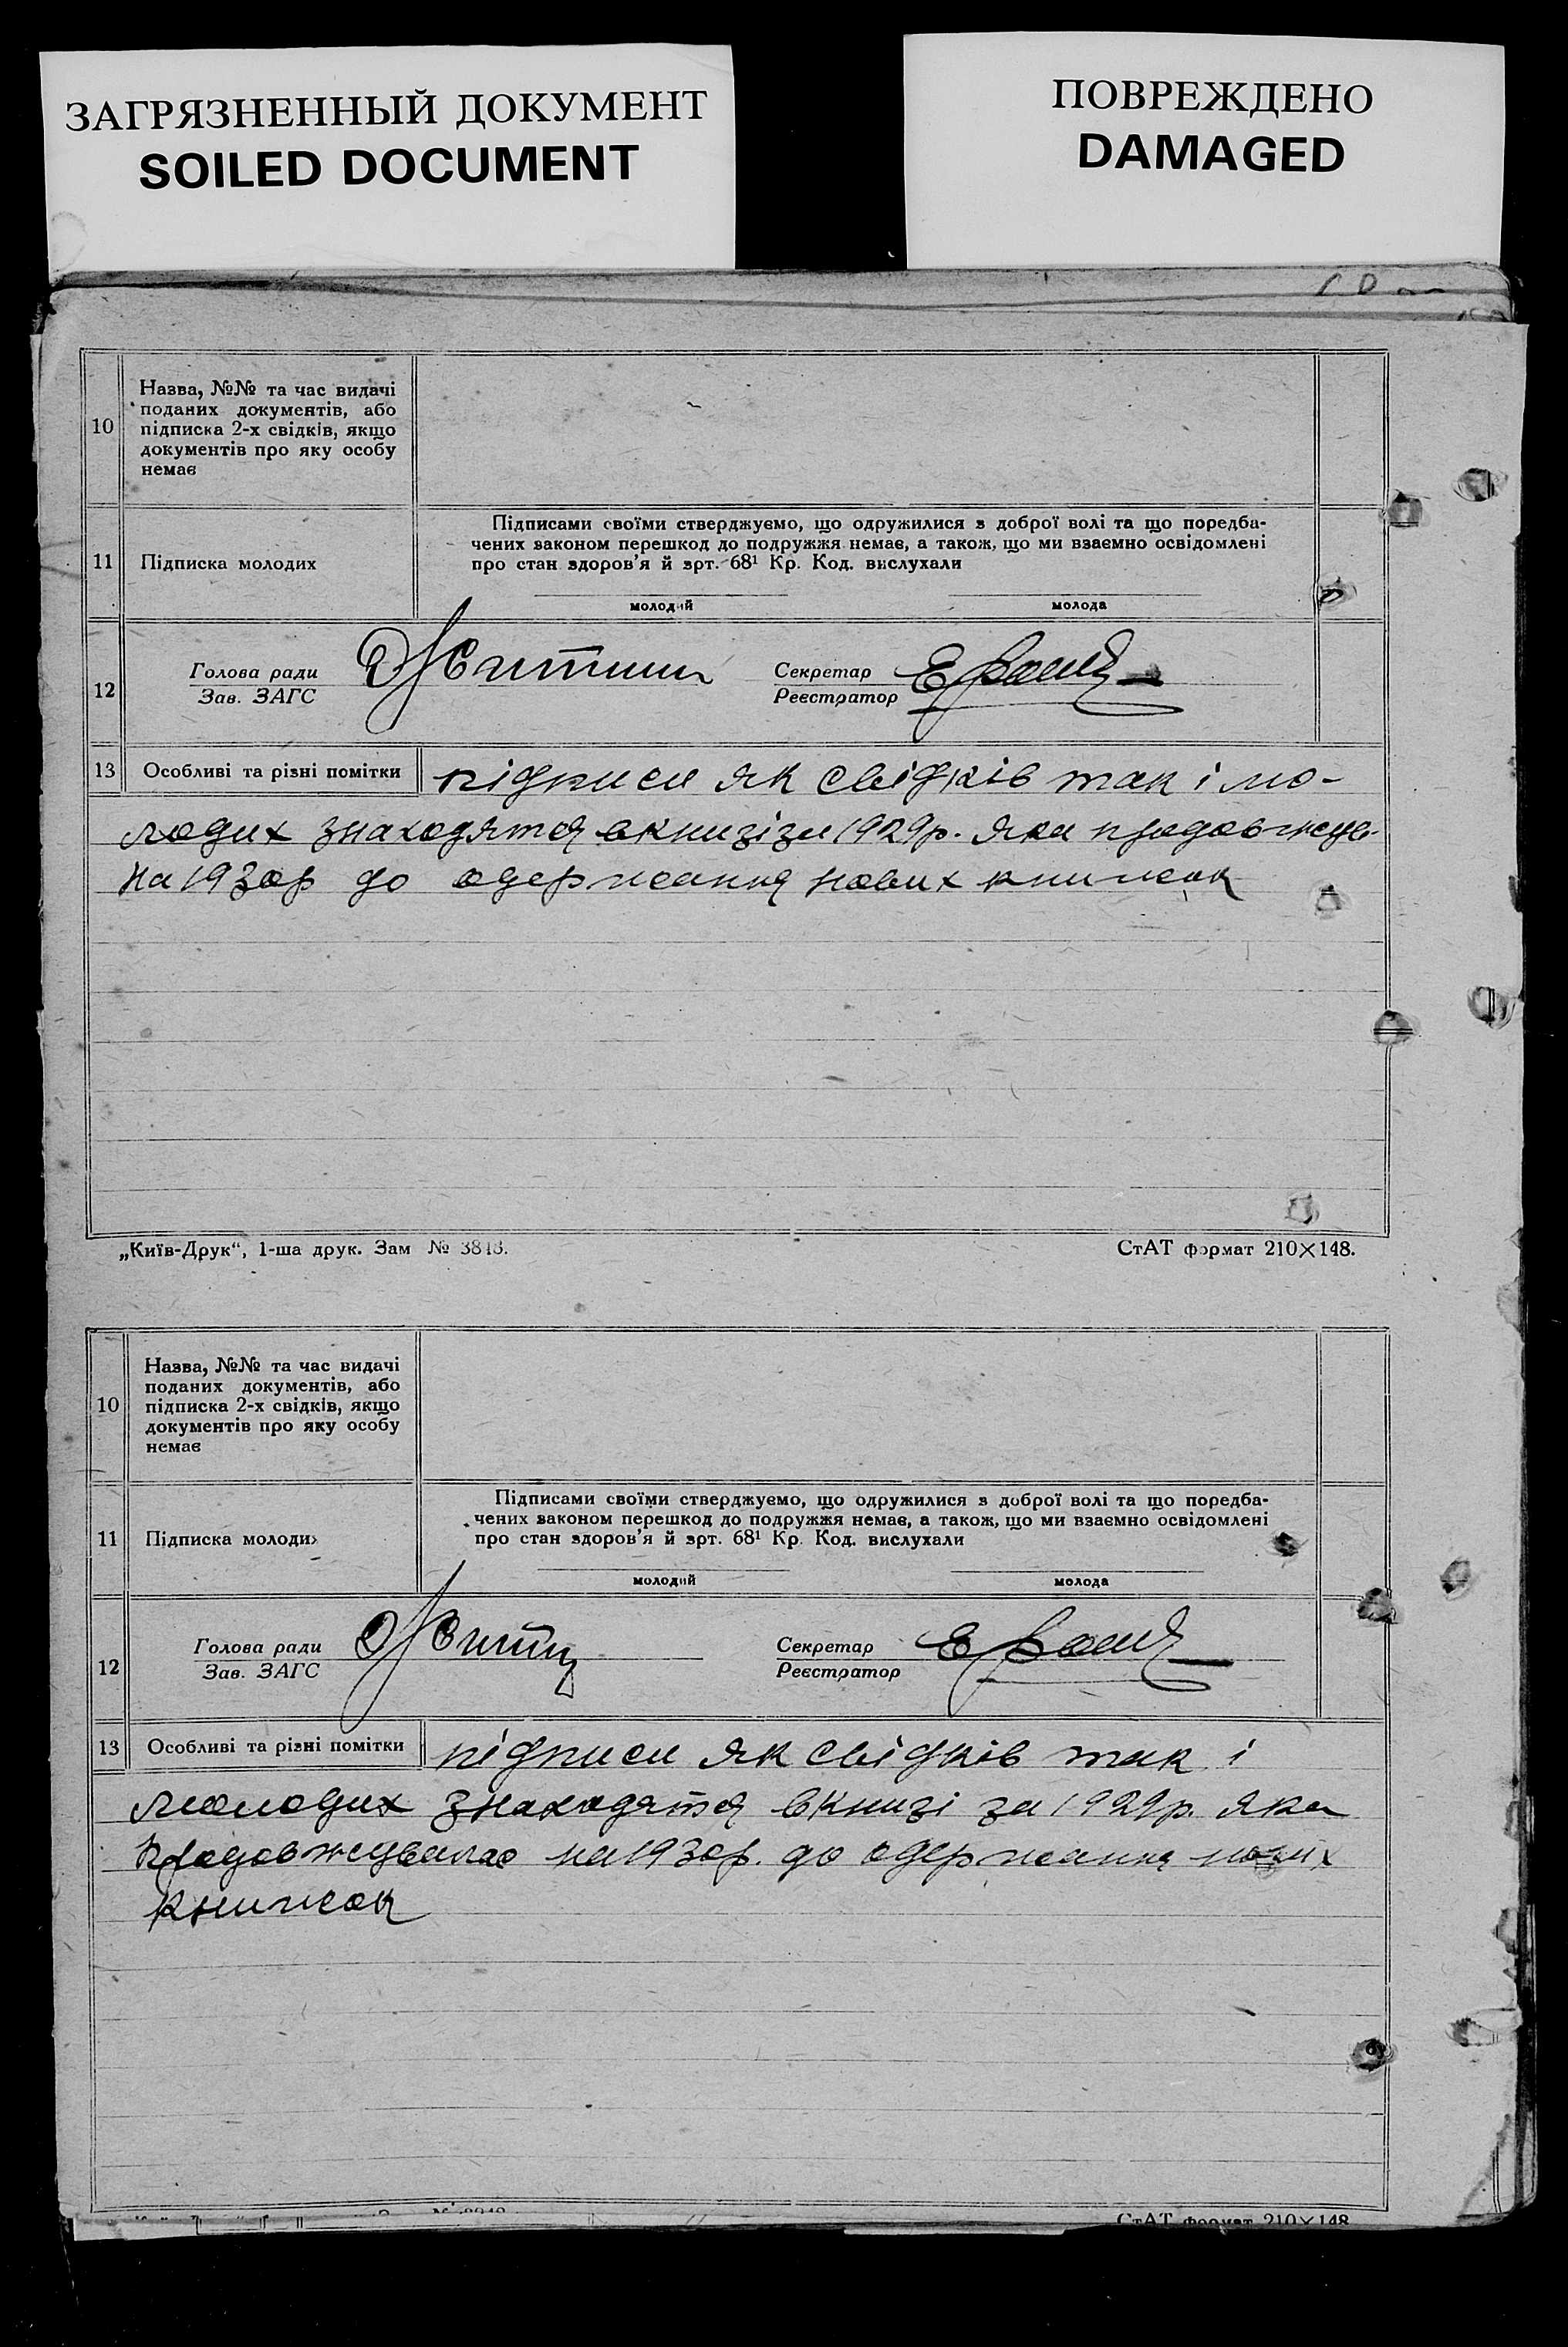 ЗАГРЯЗНЕННЫЙ ДОКУМЕНТ
SOILED DOCUMENT
ПОВРЕЖДЕНО
DAMAGED
10
Назва, №№ та час видачі
поданих документів, або
підписка 2-х свідків, якщо
документів про яку особу
немає
11
Підписка молодих
Підписами своїми стверджуємо, що одружилися з доброї волі та що поредба-
чених законом перешкод до подружжя немає, а також, що ми взаємно освідомлені
про стан здоров'я й зрт. 68¹ Кр. Код. вислухали
молодий
молода
12
Голова ради
Зав. ЗАГС
Секретар
Реєстратор
13
Особливі та різні помітки
підписи як свідків так і мо-
лодих знаходятся в книзі за 1929р. яка продовжув.
на 1930р до одержання нових книжок
„Київ-Друк“, 1-ша друк. Зам № 3843.
СтАТ формат 210×148.
10
Назва, №№ та час видачі
поданих документів, або
підписка 2-х свідків, якщо
документів про яку особу
немає
11
Підписка молодих
Підписами своїми стверджуємо, що одружилися з доброї волі та що поредба-
чених законом перешкод до подружжя немає, а також, що ми взаємно освідомлені
про стан здоров'я й зрт. 68¹ Кр. Код. вислухали
молодий
молода
12
Голова ради
Зав. ЗАГС
Секретар
Реєстратор
13
Особливі та різні помітки
підписи як свідків так і
молодих знаходятся в книзі за 1929р. яка
продовжувалас на 1930р. до одержання нових
книжок
СтАТ формат 210×148